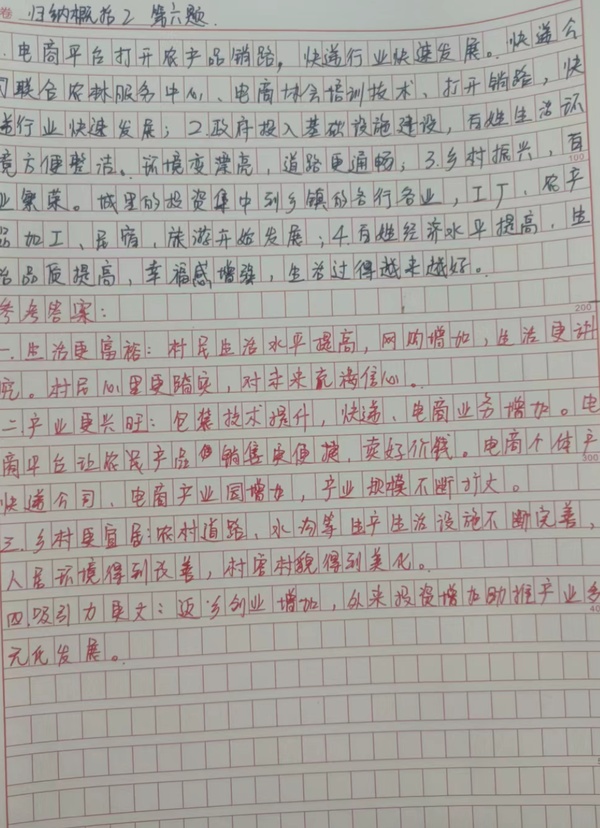 卷 归纳概括2 第六题.
.电商平台打开农产品销路，快递行业快速发展。快递公
司联合农林服务中心、电商协会培训技术、打开销路，快
递行业快速发展；2.政府投入基础设施建设，百姓生活环
境方便整洁。环境变漂亮，道路更通畅；3.乡村振兴，百
业繁荣。城里的投资集中到乡镇的各行各业，工厂、农产
品加工、民宿，旅游开始发展；4.百姓经济水平提高，生
活品质提高，幸福感增强，生活过得越来越好。
参考答案：
一.生活更富裕：村民生活水平提高，网购增加，生活更讲
究。村民心里更踏实，对未来充满信心。
二.产业更兴旺：包装技术提升，快递、电商业务增加。电
商平台让农民产品销售更便捷，卖好价钱。电商个体户
快递公司、电商产业园增加，产业规模不断扩大。
三.乡村更宜居：农村道路、水沟等生产生活设施不断完善，
人居环境得到改善，村容村貌得到美化。
四.吸引力更大：返乡创业增加，外来投资增加助推产业多
元化发展。
100
200
300
40